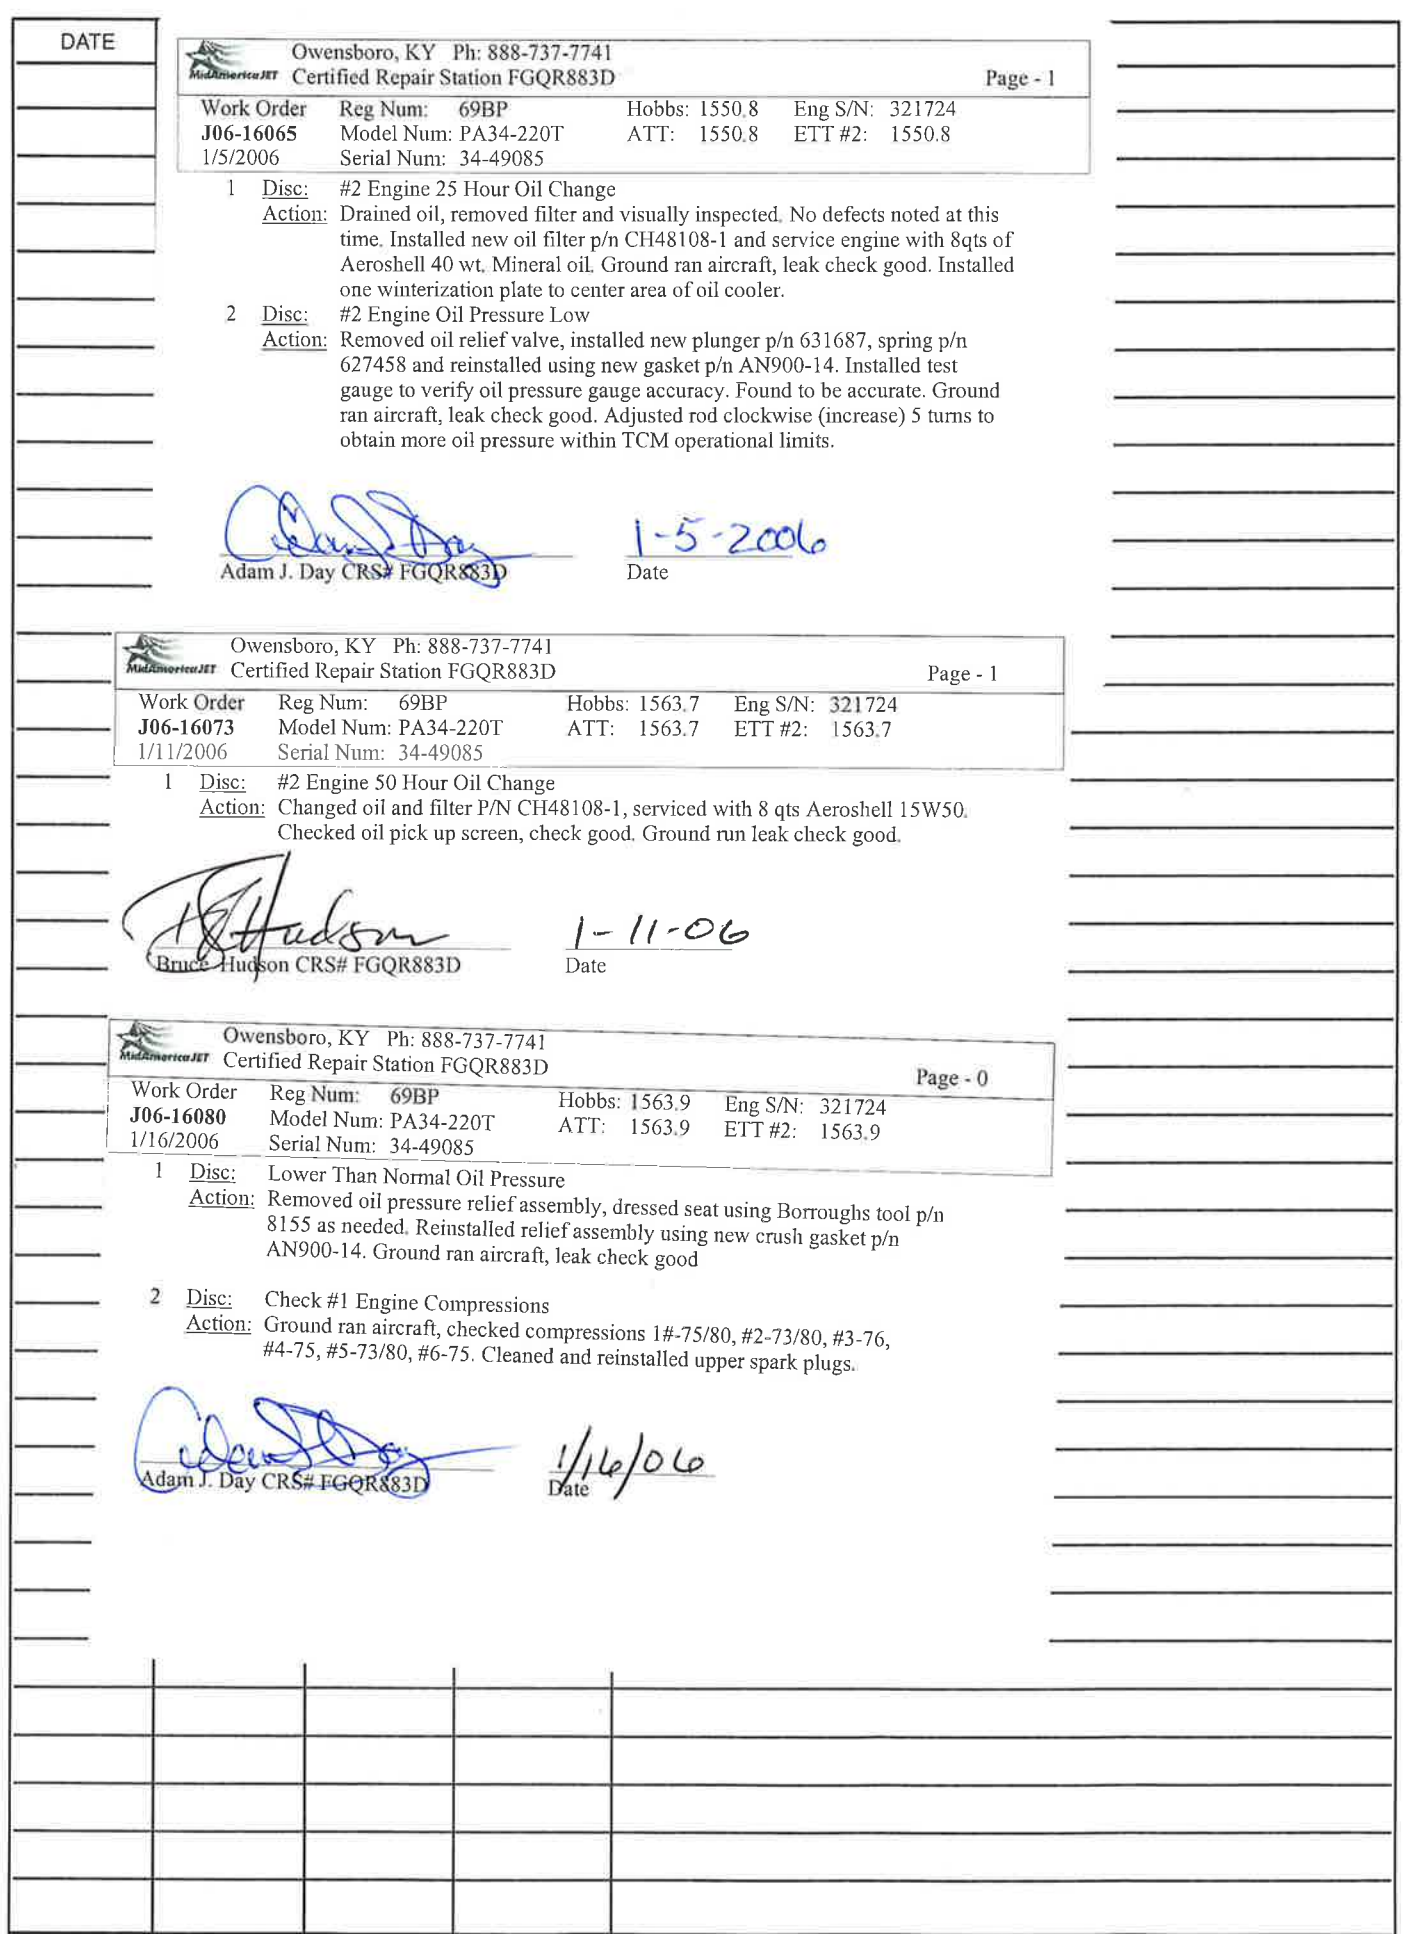 DATE
MidAmericaJET
Owensboro, KY Ph: 888-737-7741
Certified Repair Station FGQR883D Page - 1
Work Order Reg Num: 69BP Hobbs: 1550.8 Eng S/N: 321724
J06-16065 Model Num: PA34-220T ATT: 1550.8 ETT #2: 1550.8
1/5/2006 Serial Num: 34-49085
1 Disc: #2 Engine 25 Hour Oil Change
Action: Drained oil, removed filter and visually inspected. No defects noted at this
time. Installed new oil filter p/n CH48108-1 and service engine with 8qts of
Aeroshell 40 wt. Mineral oil. Ground ran aircraft, leak check good. Installed
one winterization plate to center area of oil cooler.
2 Disc: #2 Engine Oil Pressure Low
Action: Removed oil relief valve, installed new plunger p/n 631687, spring p/n
627458 and reinstalled using new gasket p/n AN900-14. Installed test
gauge to verify oil pressure gauge accuracy. Found to be accurate. Ground
ran aircraft, leak check good. Adjusted rod clockwise (increase) 5 turns to
obtain more oil pressure within TCM operational limits.
1-5-2006
Adam J. Day CRS# FGQR883D Date
MidAmericaJET
Owensboro, KY Ph: 888-737-7741
Certified Repair Station FGQR883D Page - 1
Work Order Reg Num: 69BP Hobbs: 1563.7 Eng S/N: 321724
J06-16073 Model Num: PA34-220T ATT: 1563.7 ETT #2: 1563.7
1/11/2006 Serial Num: 34-49085
1 Disc: #2 Engine 50 Hour Oil Change
Action: Changed oil and filter P/N CH48108-1, serviced with 8 qts Aeroshell 15W50.
Checked oil pick up screen, check good. Ground run leak check good.
Hudson 1-11-06
Bruce Hudson CRS# FGQR883D Date
MidAmericaJET
Owensboro, KY Ph: 888-737-7741
Certified Repair Station FGQR883D Page - 0
Work Order Reg Num: 69BP Hobbs: 1563.9 Eng S/N: 321724
J06-16080 Model Num: PA34-220T ATT: 1563.9 ETT #2: 1563.9
1/16/2006 Serial Num: 34-49085
1 Disc: Lower Than Normal Oil Pressure
Action: Removed oil pressure relief assembly, dressed seat using Borroughs tool p/n
8155 as needed. Reinstalled relief assembly using new crush gasket p/n
AN900-14. Ground ran aircraft, leak check good
2 Disc: Check #1 Engine Compressions
Action: Ground ran aircraft, checked compressions 1#-75/80, #2-73/80, #3-76,
#4-75, #5-73/80, #6-75. Cleaned and reinstalled upper spark plugs.
1/16/06
Adam J. Day CRS# FGQR883D Date